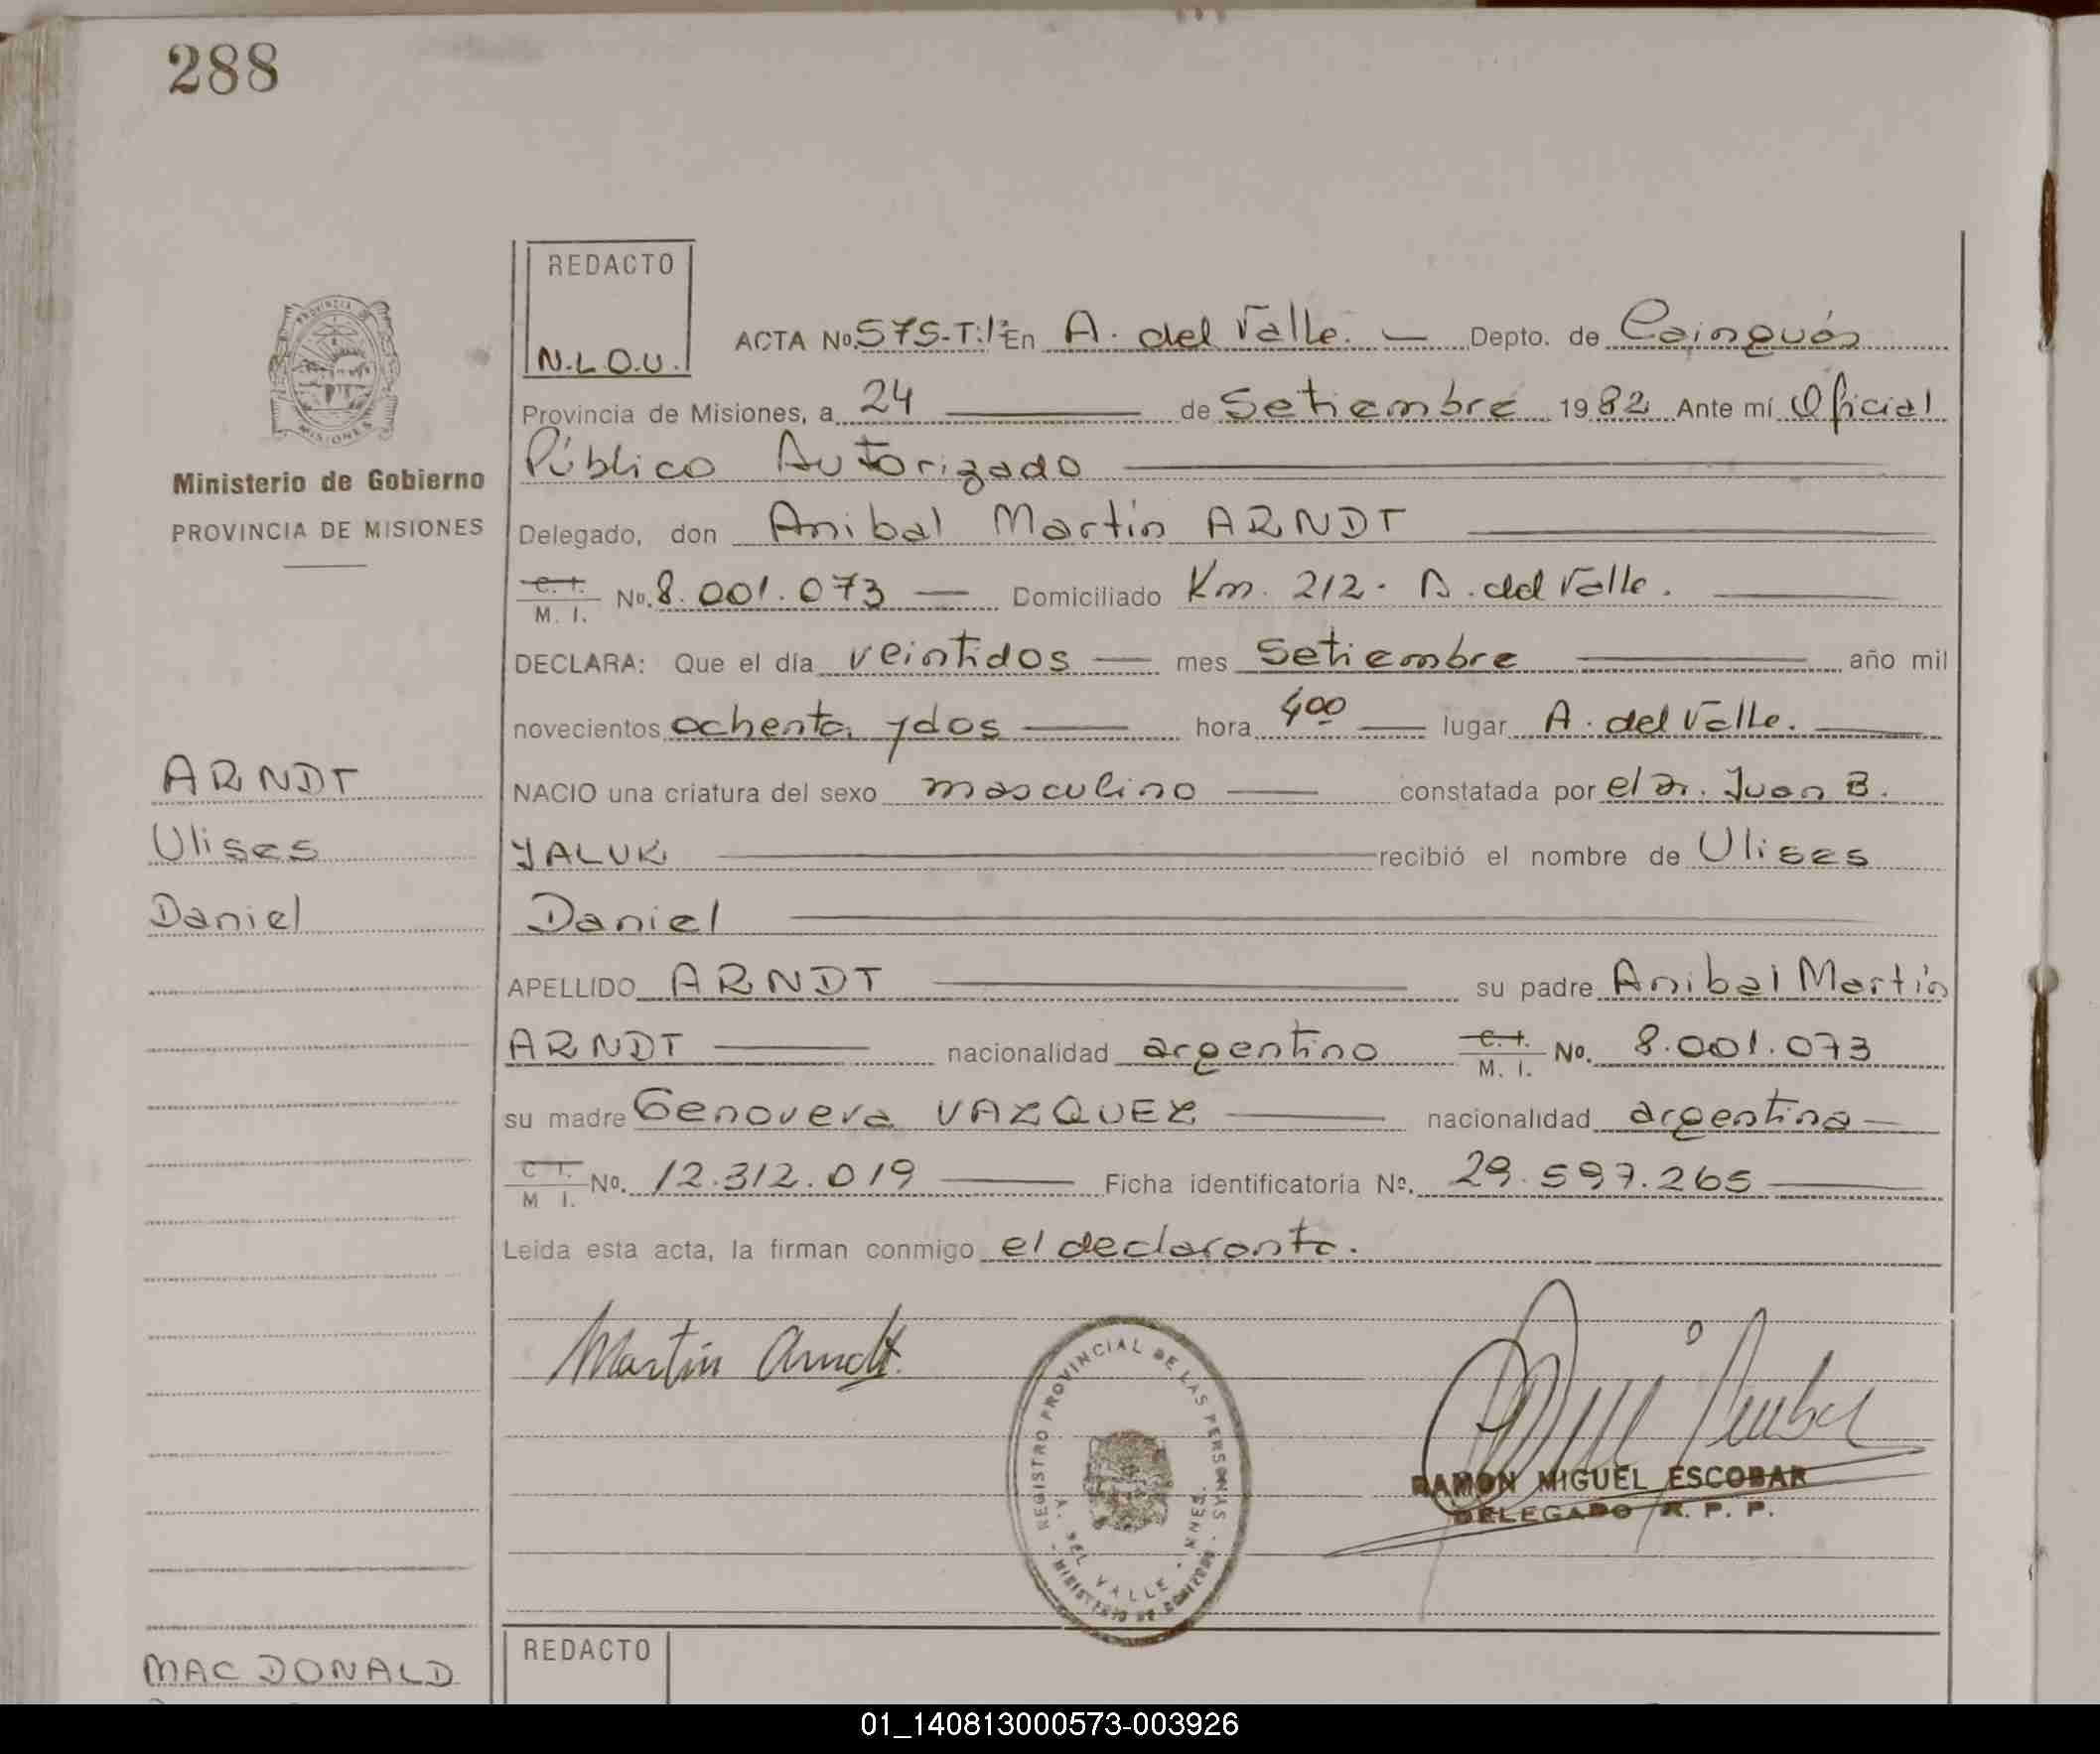 288
REDACTO
N.L.O.U.
ACTA No. 575-T:1º En A. del Valle. Depto. de Cainguás
Provincia de Misiones, a 24 de Setiembre 1982 Ante mí Oficial
Público Autorizado
Ministerio de Gobierno
PROVINCIA DE MISIONES
Delegado, don Anibal Martín ARNDT
C. I.
M. I. No. 8.001.073 Domiciliado Km. 212 - A. del Valle.
DECLARA: Que el día veintidos mes Setiembre año mil
novecientos ochenta y dos hora 400 lugar A. del Valle.
ARNDT
NACIO una criatura del sexo masculino constatada por el Dr. Juan B.
Ulises
YALUK recibió el nombre de Ulises
Daniel
Daniel
APELLIDO ARNDT su padre Anibal Martín
ARNDT nacionalidad argentino C. I. M. I. No. 8.001.073
su madre Genoveva VAZQUEZ nacionalidad argentina
C I.
M I. No. 12.312.019 Ficha identificatoria Nº. 29.597.265
Leída esta acta, la firman conmigo el declarante.
Martín Arndt.
REGISTRO PROVINCIAL DE LAS PERSONAS
A. DEL VALLE - MNES.
MINISTERIO DE GOBIERNO
RAMON MIGUEL ESCOBAR
DELEGADO R. P. P.
REDACTO
MAC DONALD
01_140813000573-003926